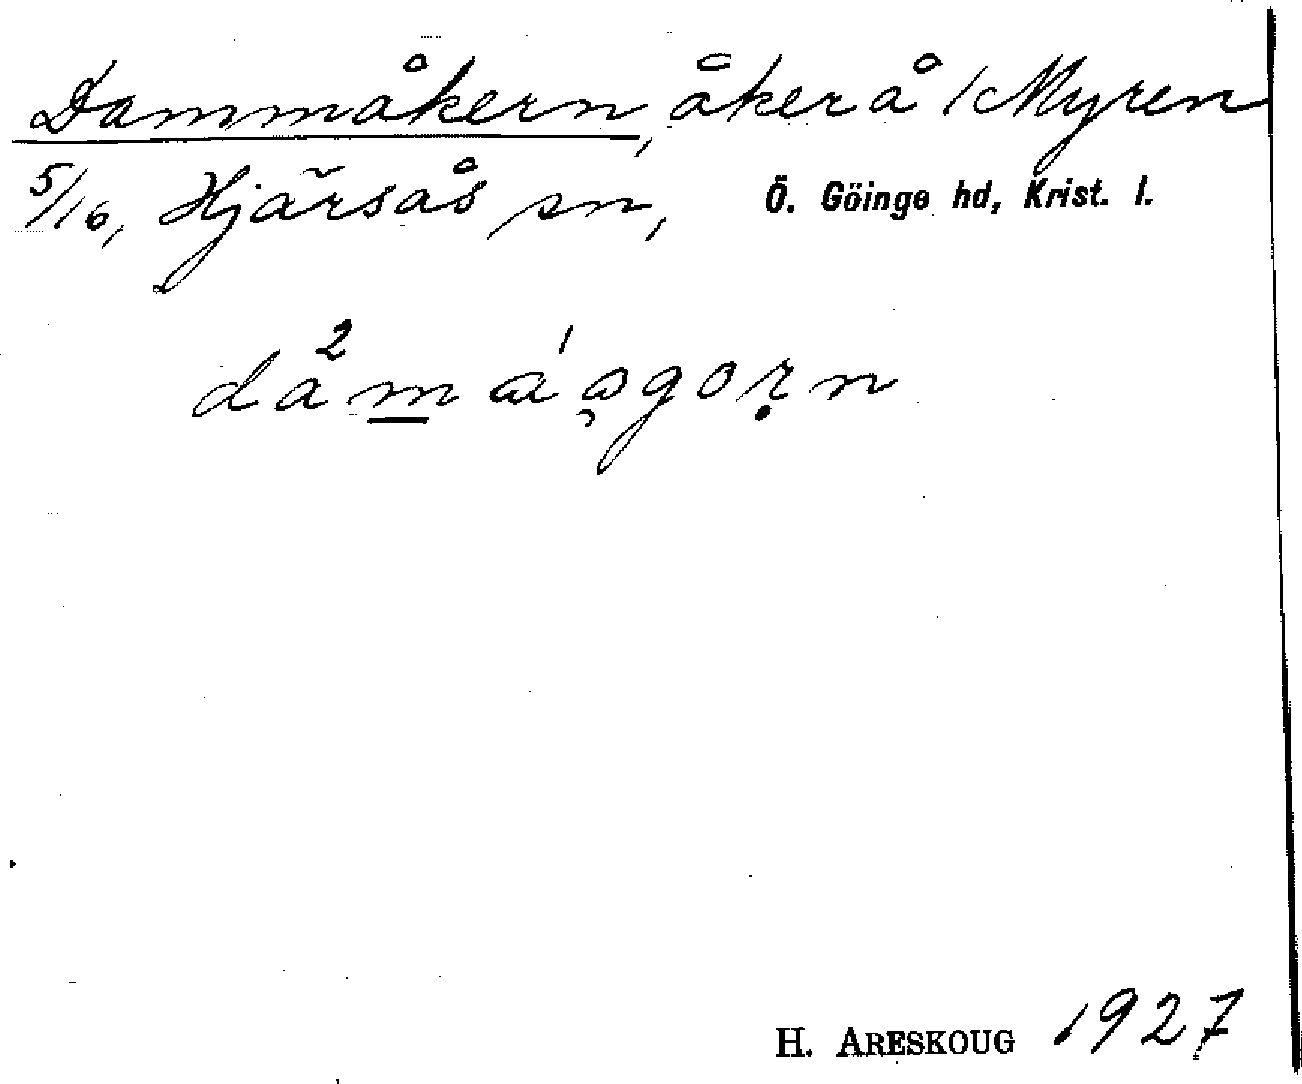 Dammåkern, åker å /Myren
5/16, Hjärsås sn, Ö. Göinge hd, Krist. l.
H. ARESKOUG 1927